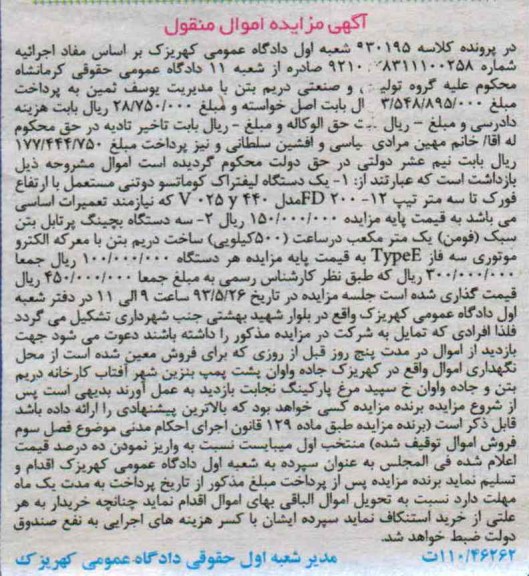 آگهی مزایده اموال منقول
در پرونده کلاسه ۹۳۰۱۹۵ شعبه اول دادگاه عمومی کهریزک بر اساس مفاد اجرائیه
شماره ۸۳۱۱۱۰۰۲۵۸ ۹۲۱۰ صادره از شعبه ۱۱ دادگاه عمومی حقوقی کرمانشاه
محکوم علیه گروه تولید و صنعتی دریم بتن با مدیریت یوسف ثمین به پرداخت
مبلغ ۳/۵۴۸/۸۹۵/۰۰۰ ال بابت اصل خواسته و مبلغ ۲۸/۷۵۰/۰۰۰ ریال بابت هزینه
دادرسی و مبلغ - ریال بابت حق الوکاله و مبلغ - ریال بابت تاخیر تادیه در حق محکوم
له اقا/ خانم مهین مرادی یباسی و افشین سلطانی و نیز پرداخت مبلغ ۱۷۷/۴۴۴/۷۵۰
ریال بابت نیم عشر دولتی در حق دولت محکوم گردیده است اموال مشروحه ذیل
بازداشت است که عبارتند از: ۱- یک دستگاه لیفتراک کوماتسو دوتنی مستعمل با ارتفاع
فورک تا سه متر تیپ ۱۲- FD ۲۰۰مدل ۴۴۰ y ۰۲۵ V که نیازمند تعمیرات اساسی
می باشد به قیمت پایه مزایده ۱۵۰/۰۰۰/۰۰۰ ریال ۲- سه دستگاه بچینگ پرتابل بتن
سبک (فومن) یک متر مکعب درساعت (۵۰۰کیلویی) ساخت دریم بتن با معرکه الکترو
موتوری سه فاز TypeE به قیمت پایه مزایده هر دستگاه ۱۰۰/۰۰۰/۰۰۰ ریال جمعا
۳۰۰/۰۰۰/۰۰۰ ریال که طبق نظر کارشناس رسمی به مبلغ جمعا ۴۵۰/۰۰۰/۰۰۰ ریال
قیمت گذاری شده است جلسه مزایده در تاریخ ۹۳/۵/۲۶ ساعت ۹ الی ۱۱ در دفتر شعبه
اول دادگاه عمومی کهریزک واقع در بلوار شهید بهشتی جنب شهرداری تشکیل می گردد
فلذا افرادی که تمایل به شرکت در مزایده مذکور را داشته باشند دعوت می شود جهت
بازدید از اموال در مدت پنج روز قبل از روزی که برای فروش معین شده است از محل
نگهداری اموال واقع در کهریزک جاده واوان پشت پمپ بنزین شهر آفتاب کارخانه دریم
بتن و جاده واوان خ سپید مرغ پارکینگ نجابت بازدید به عمل آورند بدیهی است پس
از شروع مزایده برنده مزایده کسی خواهد بود که بالاترین پیشنهادی را ارائه داده باشد
قابل ذکر است (برنده مزایده طبق ماده ۱۲۹ قانون اجرای احکام مدنی موضوع فصل سوم
فروش اموال توقیف شده) منتخب اول میبایست نسبت به واریز نمودن ده درصد قیمت
اعلام شده فی المجلس به عنوان سپرده به شعبه اول دادگاه عمومی کهریزک اقدام و
تسلیم نماید برنده مزایده پس از پرداخت مبلغ مذکور از تاریخ پرداخت به مدت یک ماه
مهلت دارد نسبت به تحویل اموال الباقی بهای اموال اقدام نماید چنانچه خریدار به هر
علتی از خرید استنکاف نماید سپرده ایشان با کسر هزینه های اجرایی به نفع صندوق
دولت ضبط خواهد شد.
۱۱۰/۴۶۲۶۲ت مدیر شعبه اول حقوقی دادگاه عمومی کهریزک